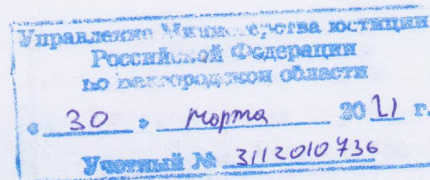 Управление Министерства юстиции
Российской Федерации
по Белгородской области
« 30 » марта 2021 г.
Учетный № 3112010736